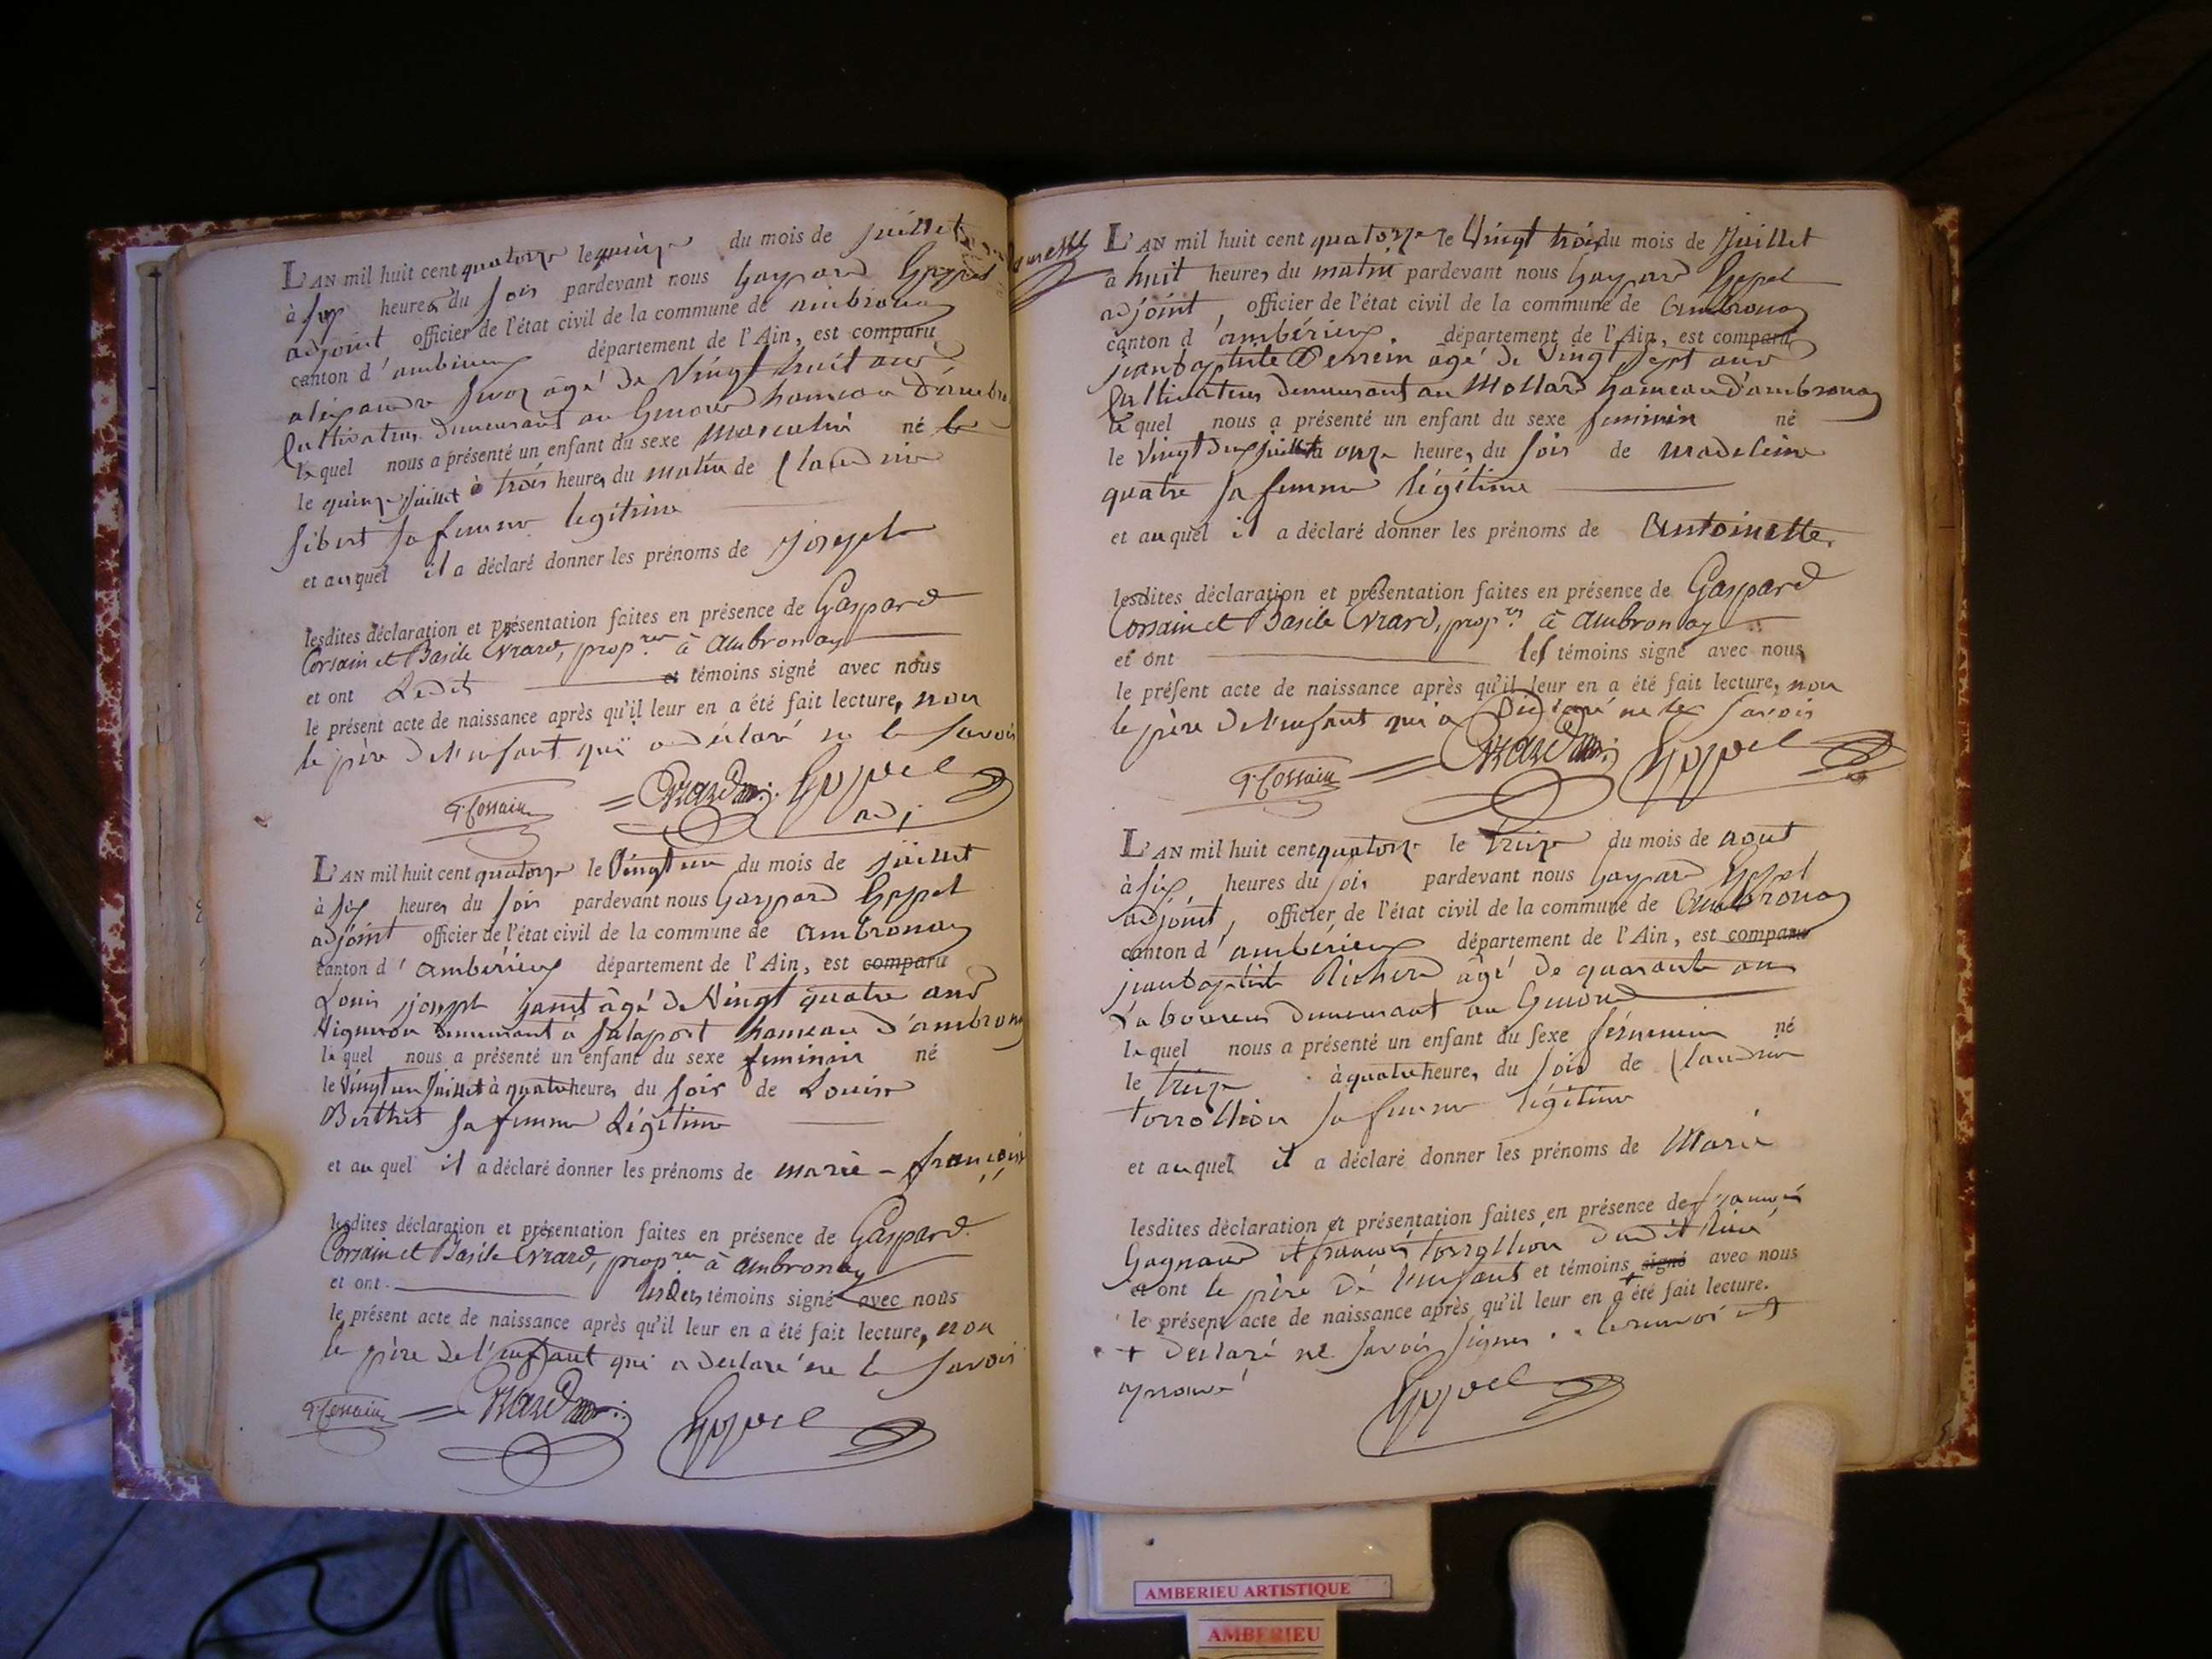 L'AN mil huit cent quatorze le quinze du mois de juillet
à six heures du soir pardevant nous Gaspard Goppel
adjoint officier de l'état civil de la commune de ambronay
canton d'ambérieux département de l'Ain, est comparu
alexandre âgé de Vingt huit ans
Cultivateur demeurant au Genoud hameau d'ambro
lequel nous a présenté un enfant du sexe Masculin né le
le quinze juillet à trois heures du matin de Claudine
Sibert sa femme legitime
et auquel il a déclaré donner les prénoms de Joseph
lesdites déclaration et présentation faites en présence de Gaspard
Corsain et Basile Evrard, prop.res à Ambronay
et ont Lesdits et témoins signé avec nous
le présent acte de naissance après qu'il leur en a été fait lecture, non
le père de l'enfant qui a déclaré ne le savoir
G. Corsain = Evrard Goppel
adj
L'AN mil huit cent quatorze le Vingt un du mois de juillet
à six heures du soir pardevant nous Gaspard Goppel
adjoint officier de l'état civil de la commune de ambronay
canton d'ambérieux département de l'Ain, est comparu
Louis joseph âgé de Vingt quatre ans
Vigneron demeurant à Salaport hameau d'ambronay
lequel nous a présenté un enfant du sexe feminin né
le Vingt un Juillet à quatre heures du soir de Louise
Berthet sa femme Légitime
et auquel il a déclaré donner les prénoms de marie - françoise
lesdites déclaration et présentation faites en présence de Gaspard
Corsain et Basile Evrard, prop.res à ambronay
et ont lesdits témoins signé avec nous
le présent acte de naissance après qu'il leur en a été fait lecture, non
le père de l'enfant qui a declaré ne le savoir
G. Corsain = Evrard Goppel
L'AN mil huit cent quatorze le Vingt trois du mois de Juillet
à huit heures du matin pardevant nous Gaspard Goppel
adjoint, officier de l'état civil de la commune de Ambronay
canton d'ambérieux département de l'Ain, est comparu
jean baptiste Perrein âgé de Vingt sept ans
Cultivateur demeurant au Mollard hameau d'ambronay
lequel nous a présenté un enfant du sexe feminin né
le Vingt deux juillet à onze heures du soir de madeleine
quatre sa femme légitime
et auquel il a déclaré donner les prénoms de Antoinette.
lesdites déclaration et présentation faites en présence de Gaspard
Corsain et Basile Evrard, prop.res à Ambronay
et ont les témoins signé avec nous
le présent acte de naissance après qu'il leur en a été fait lecture, non
le père de l'enfant qui a déclaré ne le savoir
G. Corsain = Evrard Goppel
L'AN mil huit cent quatorze le treize du mois de aout
à six heures du soir pardevant nous Gaspard Goppel
adjoint, officier de l'état civil de la commune de Ambronay
canton d'ambérieux département de l'Ain, est comparu
jean baptiste Richerd âgé de quarante ans
Laboureur demeurant au Genoud
lequel nous a présenté un enfant du sexe féminin né
le treize à quatre heures du soir de Claudine
torrollion sa femme légitime
et auquel il a déclaré donner les prénoms de Marie
lesdites déclaration et présentation faites en présence de françois
Gagnaud et françois torrollion dudit lieu
et ont le père de l'enfant et témoins signé avec nous
le présent acte de naissance après qu'il leur en a + été fait lecture.
+ déclaré ne savoir signer. le renvoi est
approuvé
Goppel
AMBERIEU ARTISTIQUE
AMBERIEU